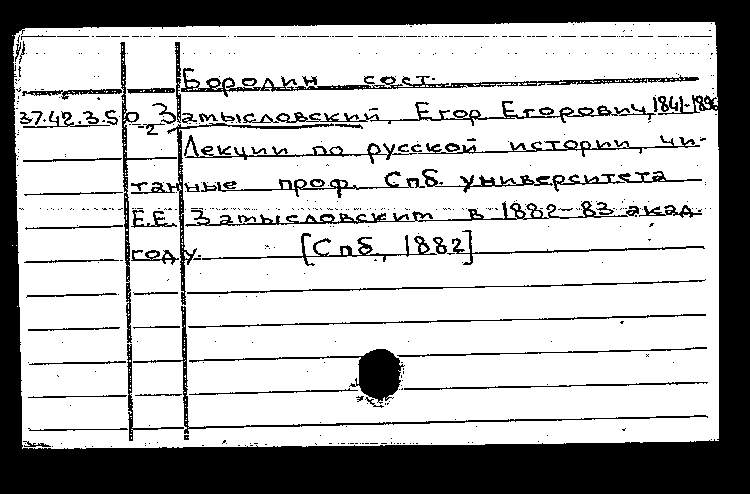 Бородин сост.
37.42.3.50 Замысловский, Егор Егорович, 1841-1896
-2
Лекции по русской истории, чи-
танные проф. Спб. университета
Е.Е. Замысловским в 1882-83 акад.
году. [Спб., 1882]